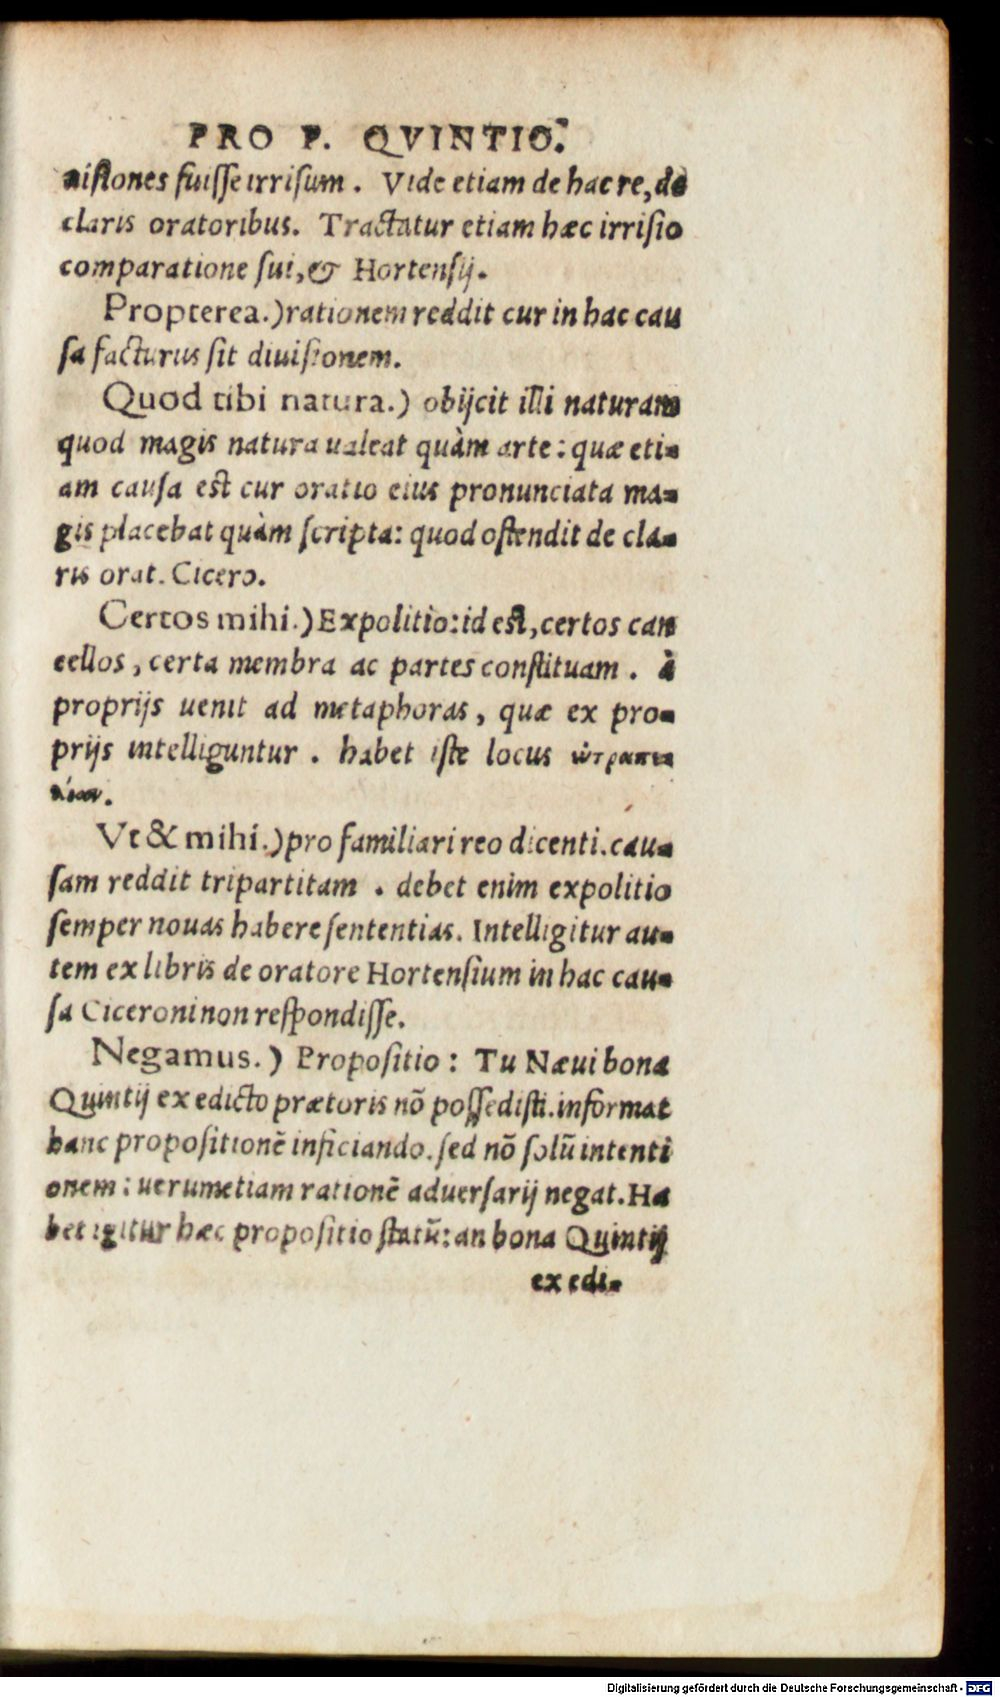 PRO P. QVINTIO.
nisiones fuisse irrisum. Vide etiam de hac re, de
claris oratoribus. Tractatur etiam hæc irrisio
comparatione sui, & Hortensij.
Propterea.) rationem reddit cur in hac cau
sa facturus sit diuisionem.
Quod tibi natura.) obijcit illi naturam
quod magis natura ualeat quàm arte: quæ eti-
am causa est cur oratio eius pronunciata ma-
gis placebat quàm scripta: quod ostendit de cla-
ris orat. Cicero.
Certos mihi.) Expolitio: id est, certos can
cellos, certa membra ac partes constituam. à
proprijs uenit ad metaphoras, quæ ex pro-
prijs intelliguntur. habet iste locus
Vt & mihi.) pro familiari reo dicenti. cau-
sam reddit tripartitam. debet enim expolitio
semper nouas habere sententias. Intelligitur au-
tem ex libris de oratore Hortensium in hac cau-
sa Ciceroni non respondisse.
Negamus.) Propositio: Tu Næui bona
Quintij ex edicto prætoris nõ possedisti. informat
hanc propositionẽ inficiando. sed nõ solũ intenti
onem: uerumetiam rationẽ aduersarij negat. Ha
bet igitur hæc propositio statũ: an bona Quintij
ex edi-
Digitalisierung gefördert durch die Deutsche Forschungsgemeinschaft - DFG